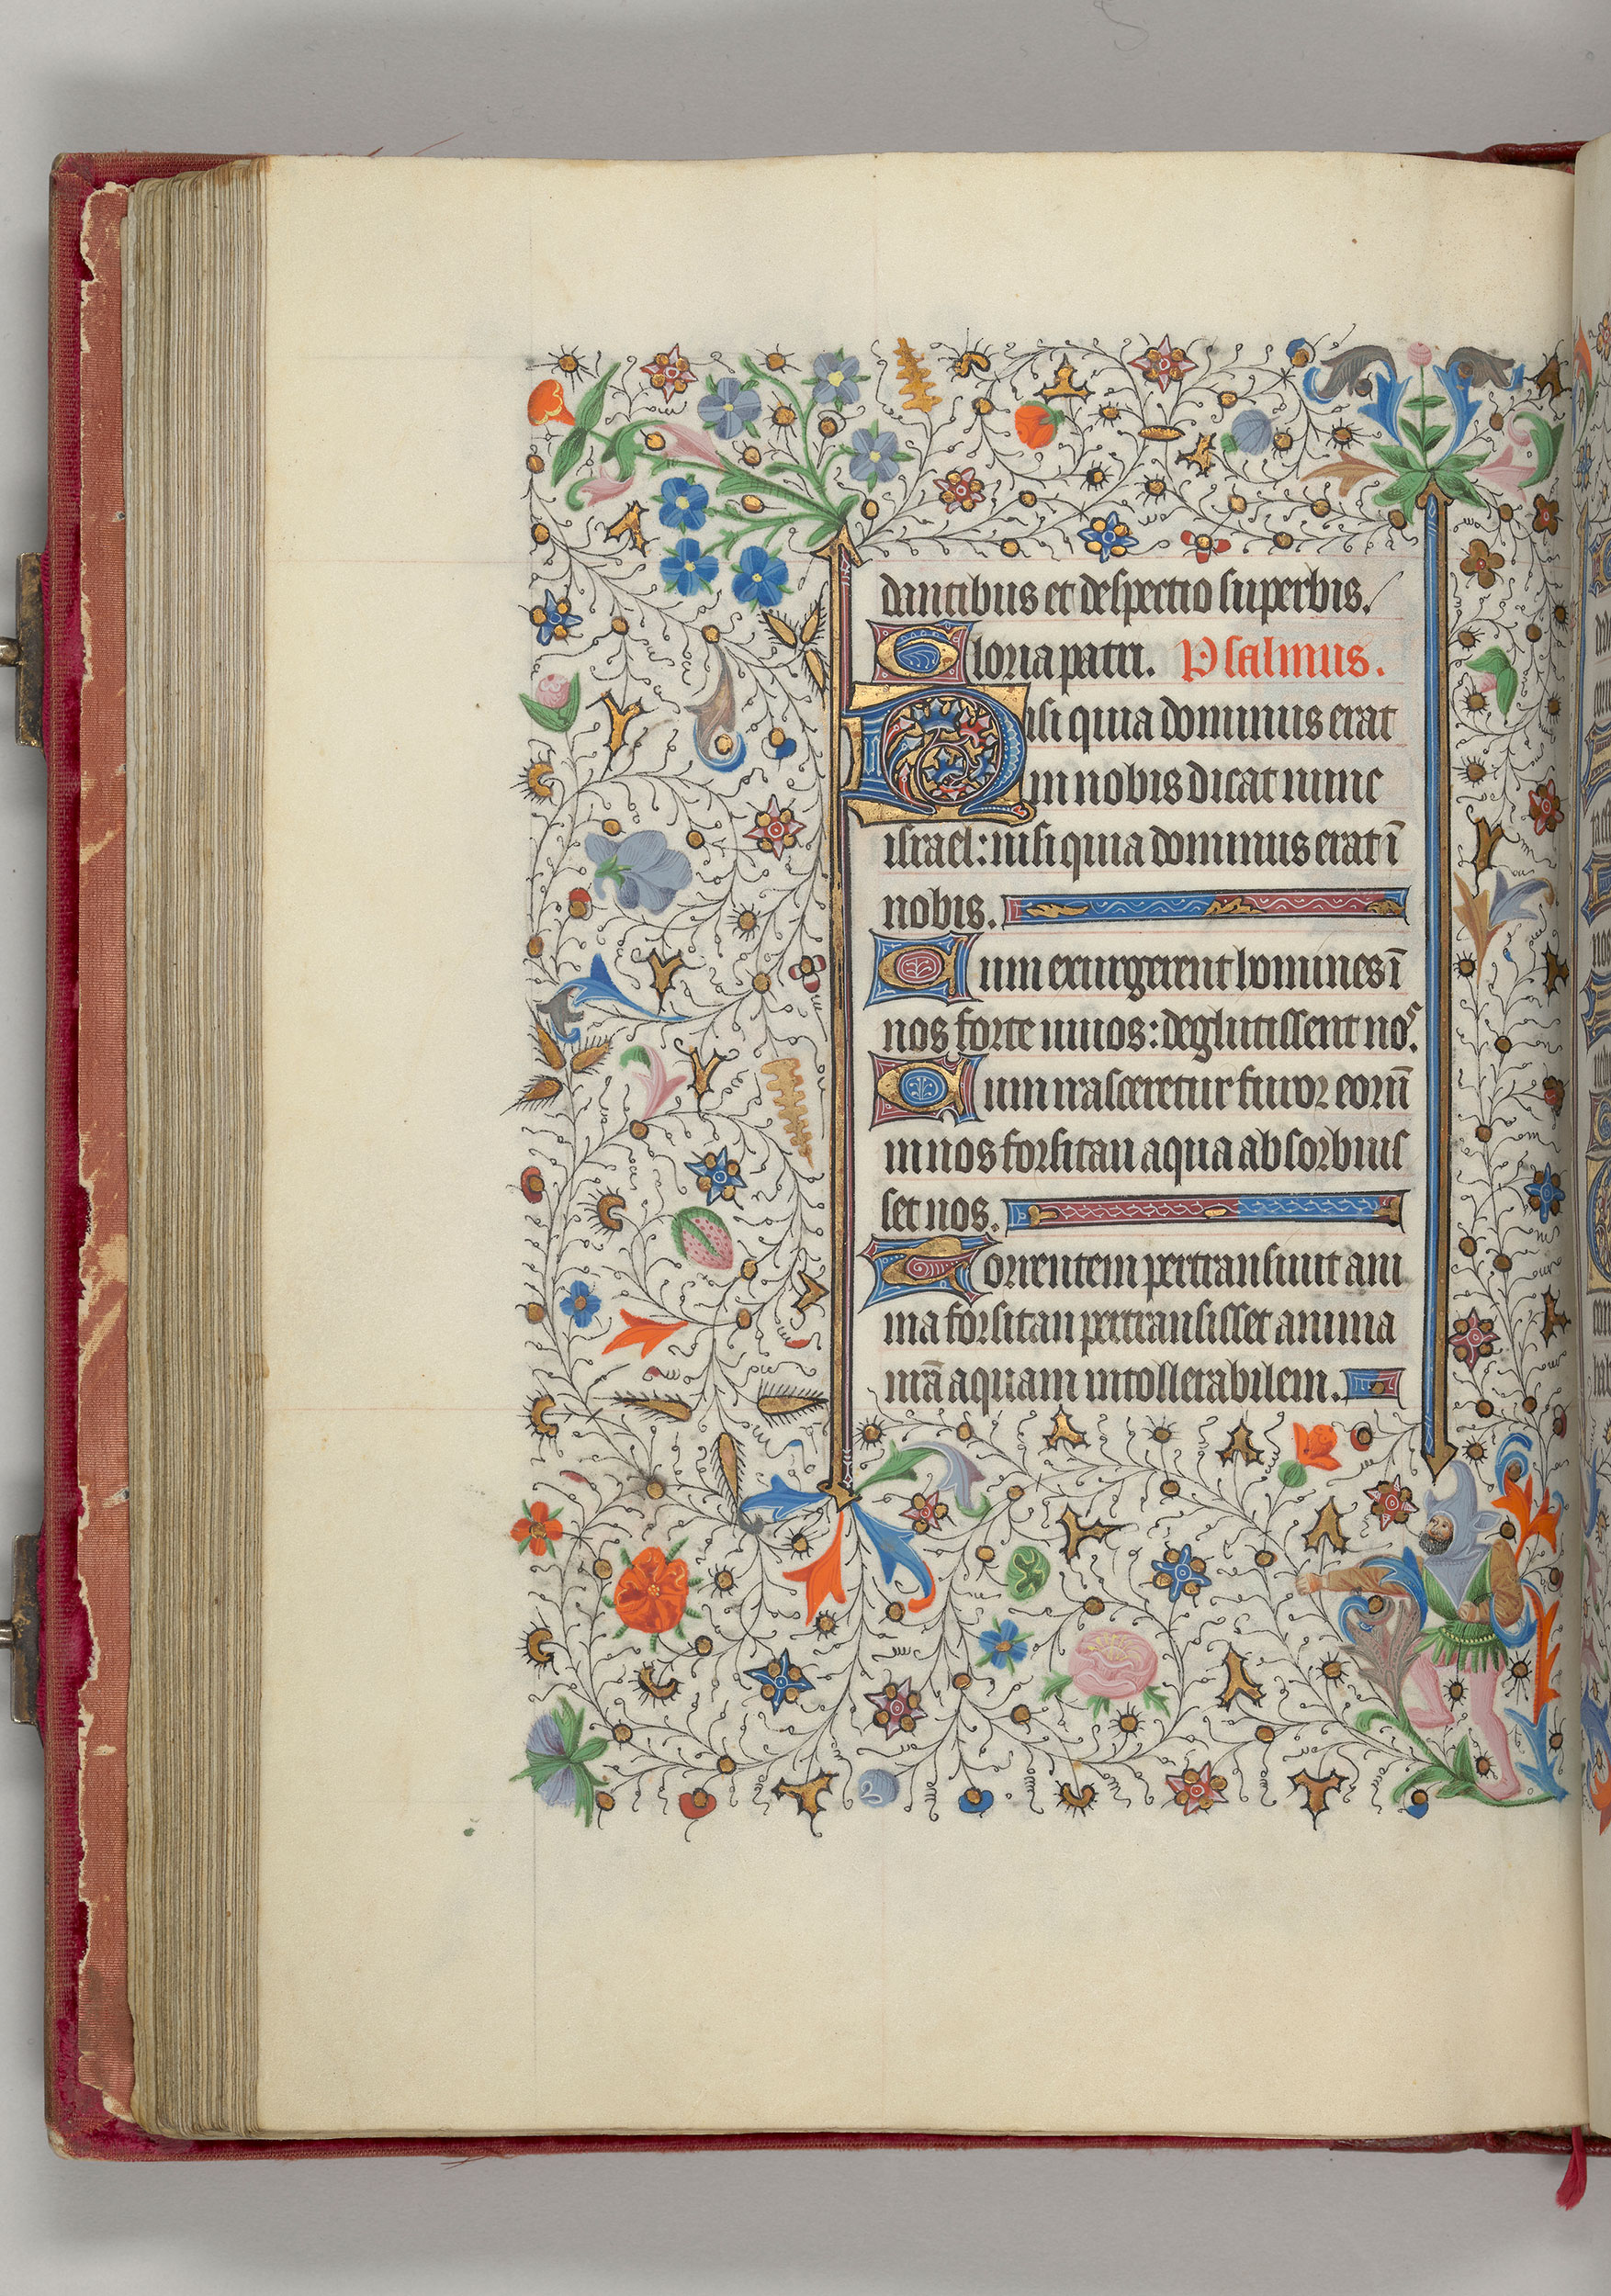 dantibus et despectio superbis.
Gloria patri. Psalmus.
Nisi quia dominus erat
in nobis dicat nunc
israel: nisi quia dominus erat ī
nobis.
Cum exurgerent homines ī
nos forte vivos: deglutissent nos.
Cum irasceretur furor eorū
in nos forsitan aqua absorbuis
set nos.
Torrentem pertransivit ani
ma forsitan pertransisset anima
nr̄a aquam intollerabilem.